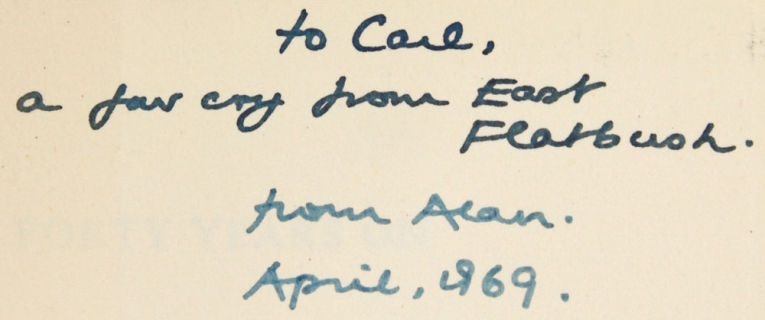 to Carl,
a far cry from East
Flatbush.
from Alan.
April, 1969.